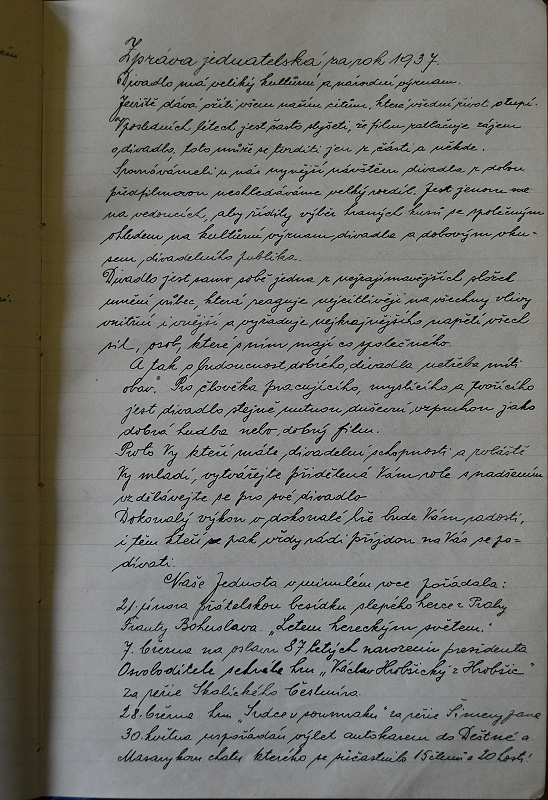 Zpráva jednatelská za rok 1937.
Divadlo má veliký kulturní a národní význam.
Jeviště dává žíti všem našim citům, které všední život otupí.
V posledních létech jest často slyšeti, že film zatlačuje zájem
o divadlo, toto může se tvrditi jen z části a někde.
Srovnáme-li u nás nynější návštěvu divadla z dobou
předfilmovou neshledáváme velký rozdíl. Jest jenom na
na vedoucích, aby řídily výběr hraných kusů se společným
ohledem na kulturní význam divadla a dobovým vku-
sem, divadelního publika.
Divadlo jest samo sobě jedna z nejzajímavějších složek
umění vůbec, která reaguje nejcitlivěji na všechny vlivy
vnitřní i vnější a vyžaduje nejkrajnějšího napětí všech
sil, osob, které s ním mají co společného.
A tak o budoucnost dobrého divadla netřeba míti
obav. Pro člověka pracujícího, myslícího a tvořícího
jest divadlo stejně nutnou duševní vzpruhou jako
dobrá hudba nebo dobrý film.
Proto Vy kteří máte divadelní schopnosti a zvláště
Vy mladí, vytvářejte přidělená Vám role s nadšením
vzdělávejte se pro své divadlo
Dokonalý výkon v dokonalé hře bude Vám radostí,
i těm kteří pak vždy rádi přijdou na Vás se po-
dívati.
Naše Jednota v minulém roce pořádala:
21. února přátelskou besídku slepého herce z Prahy
Franty Bohuslava. „Letem hereckým světem."
7. března na oslavu 87 letých narozenin presidenta
Osvoboditele sehrála hru „Václav Hrobčický z Hrobčic"
za režie Skalického Čestmíra
28. března hru „Srdce v soumraku" za režie Šimery Jana
30. května uspořádán výlet autokarem do Deštné a
Masarykovu chatu kterého se súčastnilo 15 členů a 20 hostí.